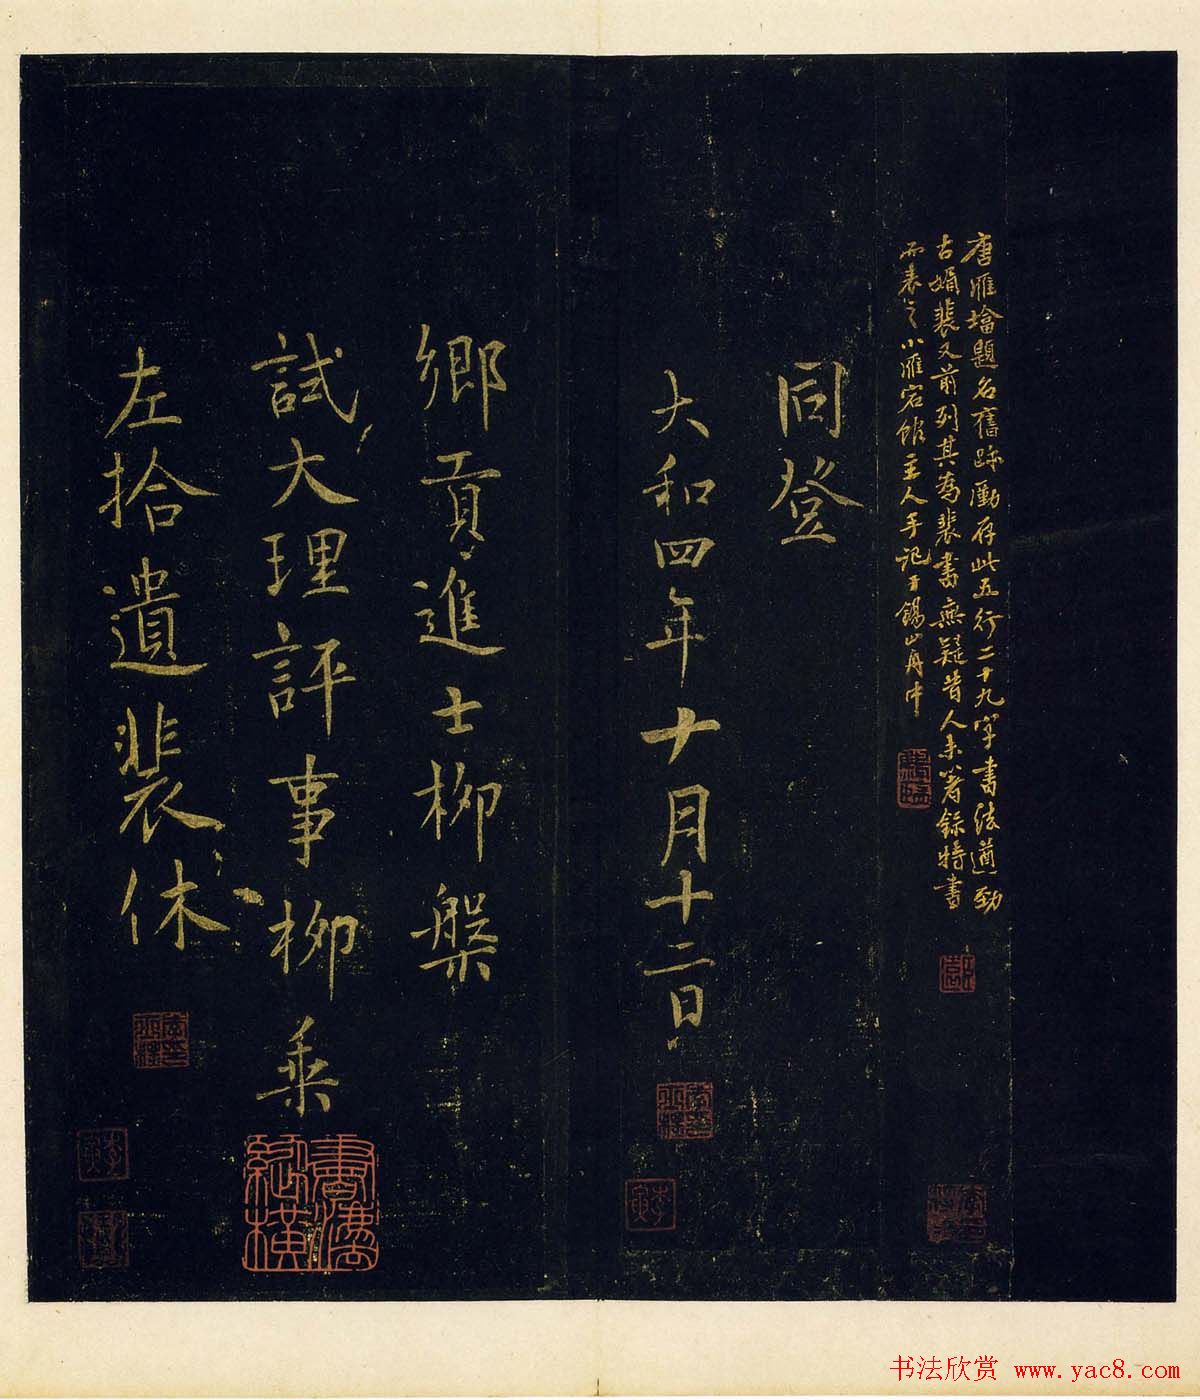 唐雁墖題名舊跡勵存此五行二十九字書法遒勁
古媚裴又前列其為裴書無疑昔人未箸錄特書
而表之小雁宕館主人手記于錫山舟中
左拾遺裴休
試大理評事柳乘
鄉貢進士柳槃
大和四年十月十二日
同登
书法欣赏 www.yac8.com